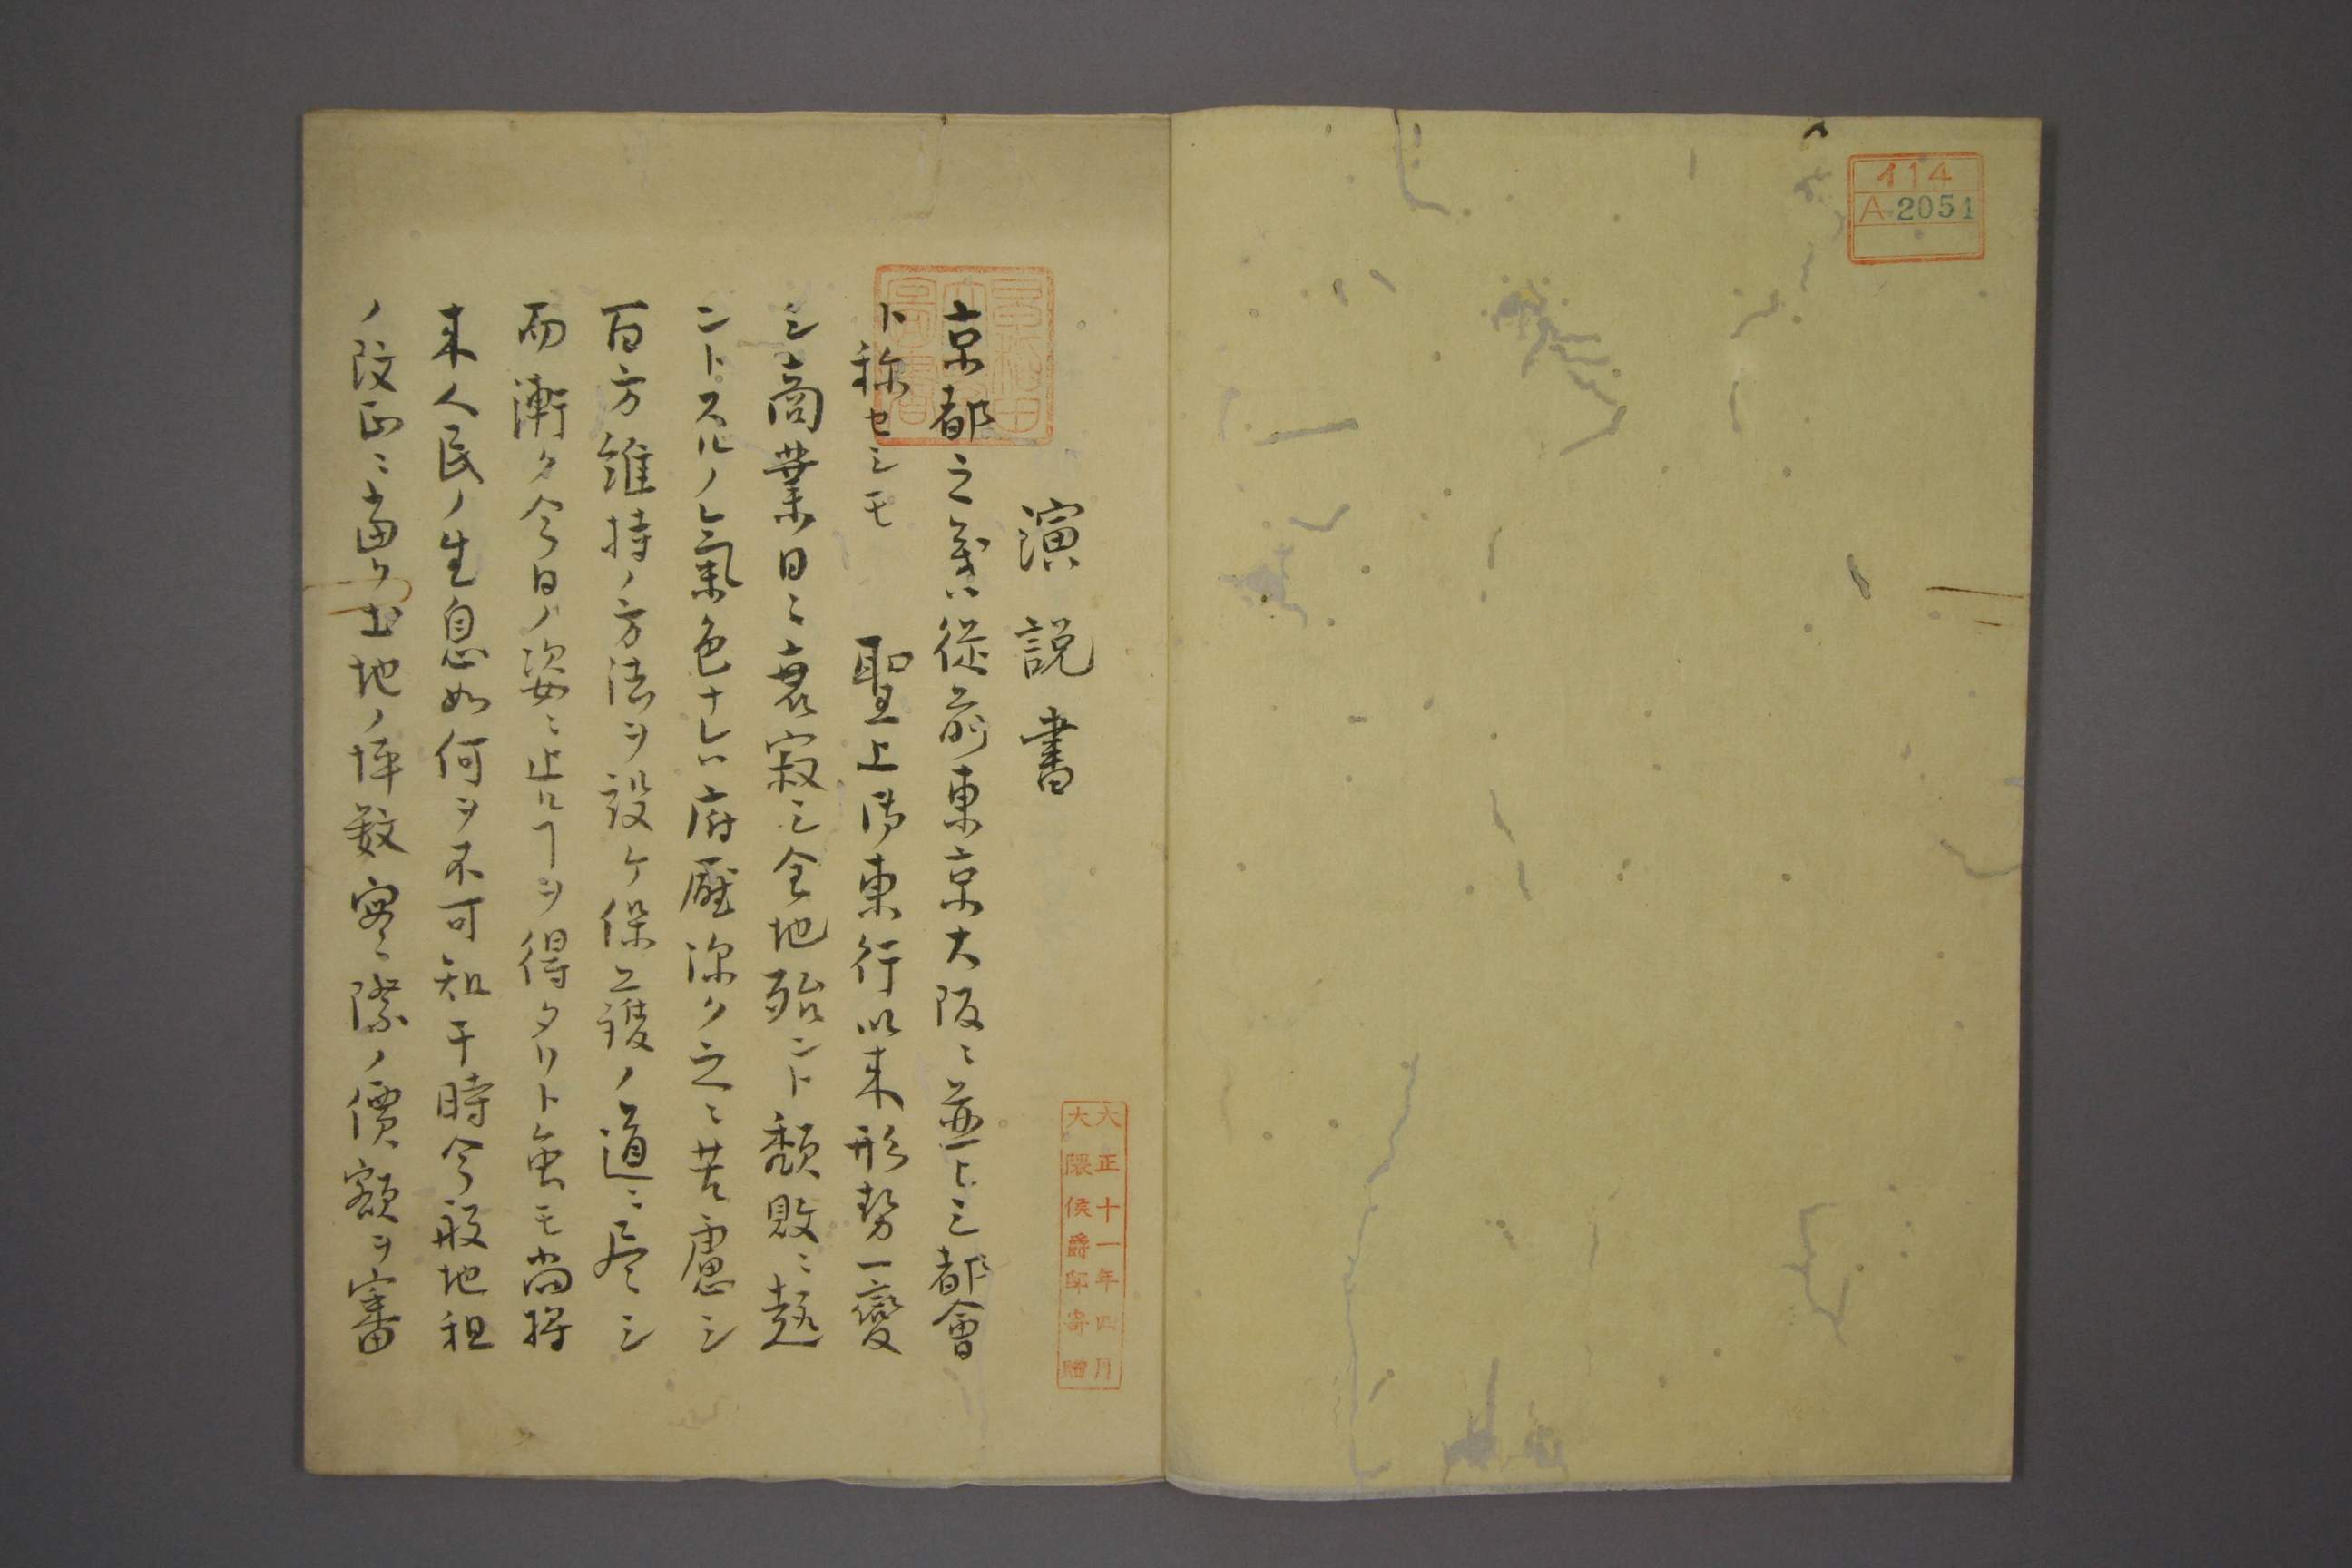 イ14
A 2051
大正十一年四月
大隈侯爵邸寄贈
演説書
京都之義ハ従前東京大阪ニ並ヒシ都會
ト称セシモ 聖上御東行以来形勢一變
シ商業日ニ衰寂シ全地殆ント頽敗ニ趍
ントスルノ氣色ナレハ府廳深ク之ニ苦慮シ
百方維持ノ方法ヲ設ケ保護ノ道ニ尽シ
而漸ク今日ノ姿ニ止ルヿヲ得タリト虽モ尚将
来人民ノ生息如何ヲ不可知干時今般地租
ノ改正ニ當リ土地ノ坪数寔際ノ價額ヲ審